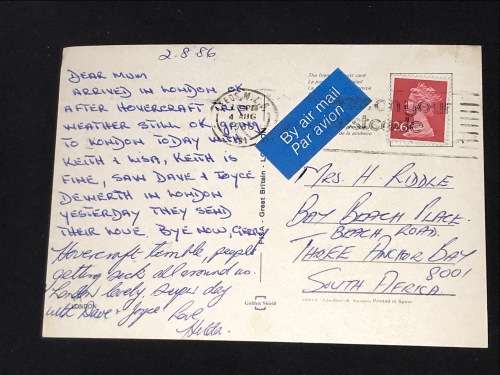 2.8.86
DEAR MUM
ARRIVED IN LONDON OK
AFTER HOVERCRAFT TRIP
WEATHER STILL OK. GOING
TO LONDON TODAY WITH
KEITH & LISA, KEITH IS
FINE, SAW DAVE & JOYCE
IN LONDON
YESTERDAY THEY SEND
THEIR LOVE. BYE NOW, GERRY
Hovercraft terrible, people
getting sick all around us.
London lovely, super day
with Dave & Joyce Love
Hilda.
LONDON
- Great Britain -
4 AUG
1986
By air mail
Par avion
26P
MRS H. RIDDLE
BAY BEACH PLACE.
BEACH ROAD.
THREE ANCHOR BAY
8001
SOUTH AFRICA
Golden Shield
Printed in Spain